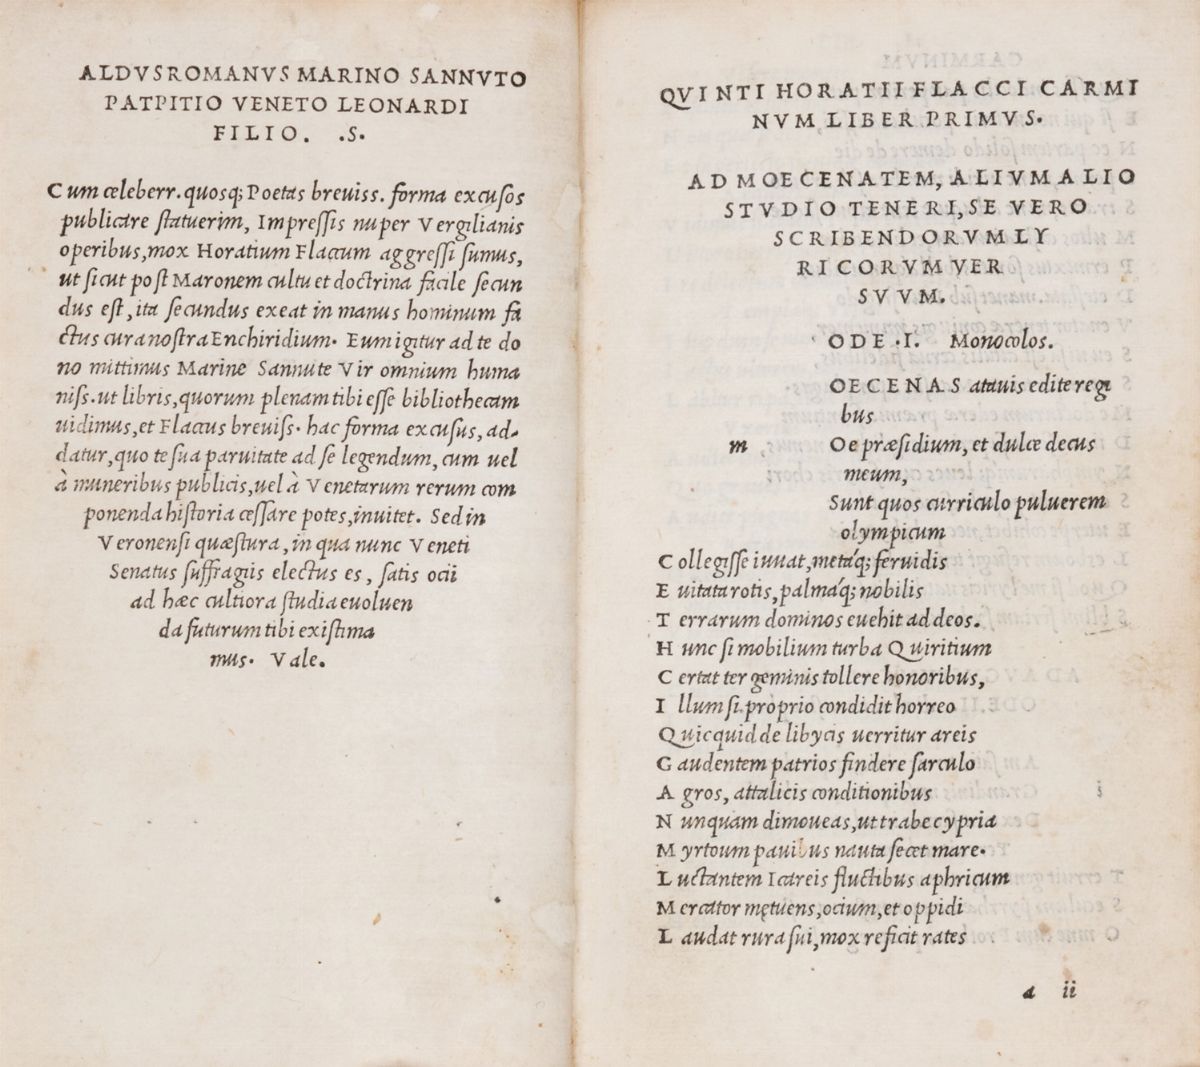 ALDVSROMANVS MARINO SANNVTO
PATPITIO VENETO LEONARDI
FILIO. .S.
Cum celeberr. quosq; Poetas breviss. forma excusos
publicare ſtatuerim, Impreſſis nuper Vergilianis
operibus, mox Horatium Flaccum aggreſſi sumus,
ut sicut poſt Maronem cultu et doctrina facile secun
dus eſt, ita secundus exeat in manus hominum fa
ctus cura noſtra Enchiridium. Eum igitur ad te do
no mittimus Marine Sannute Vir omnium huma
niſs. ut libris, quorum plenam tibi eſſe bibliothecam
uidimus, et Flaccus breviſs. hac forma excusus, ad-
datur, quo te sua paruitate ad se legendum, cum uel
à muneribus publicis, uel à Venetarum rerum com
ponenda hiſtoria ceſſare potes, inuitet. Sed in
Veronensi quæſtura, in qua nunc Veneti
Senatus ſuffragiis electus es, satis ocii
ad hæc cultiora ſtudia euoluen
da futurum tibi exiſtima
mus. Vale.
QVINTI HORATII FLACCI CARMI
NVM LIBER PRIMVS.
AD MOECENATEM, ALIVM ALIO
STVDIO TENERI, SE VERO
SCRIBENDORVM LY
RICORVM VER
SVVM.
ODE .I. Monocolos.
OECENAS atauis edite regi
bus
m Oe præsidium, et dulce decus
meum,
Sunt quos curriculo puluerem
olympicum
Collegiſſe iuuat, metáq; feruidis
Euitata rotis, palmáq; nobilis
Terrarum dominos euehit ad deos.
Hunc si mobilium turba Quiritium
Certat ter geminis tollere honoribus,
Illum si proprio condidit horreo
Quicquid de libycis uerritur areis
Gaudentem patrios findere sarculo
Agros, attalicis conditionibus
Nunquam dimoueas, ut trabe cypria
Myrtoum pauibus nauta secet mare.
Luctantem Icareis fluctibus aphricum
Mercator mętuens, ocium, et oppidi
Laudat rura sui, mox reficit rates
a ii